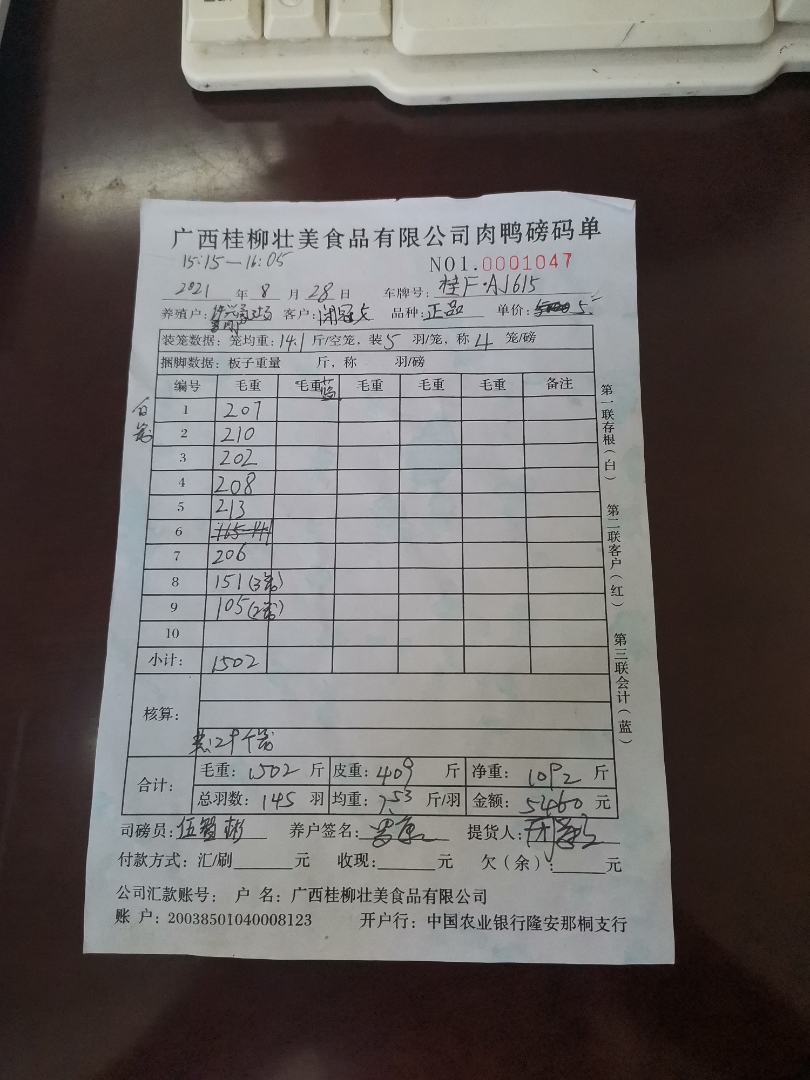 广西桂柳壮美食品有限公司肉鸭磅码单
15:15—16:05
NO1.0001047
2021 年 8 月 28 日 车牌号: 桂F·AJ615
养殖户: 客户: 闭冠 品种: 正品 单价: 5.-
装笼数据: 笼均重: 14.1 斤/空笼, 装 5 羽/笼, 称 4 笼/磅
捆脚数据: 板子重量 斤, 称 羽/磅
编号 毛重 毛重 蓝 毛重 毛重 毛重 备注
白笼
1 207
2 210
3 202
4 208
5 213
6
7 206
8 151 (3笼)
9 105 (2笼)
10
小计: 1502
核算:
总: 29个笼
合计: 毛重: 1502 斤 皮重: 409 斤 净重: 1092 斤
总羽数: 145 羽 均重: 7.53 斤/羽 金额: 5460 元
司磅员: 伍 彬 养户签名: 提货人:
付款方式: 汇/刷 元 收现: 元 欠（余）: 元
公司汇款账号: 户 名: 广西桂柳壮美食品有限公司
账 户: 20038501040008123 开户行: 中国农业银行隆安那桐支行
第一联存根（白）
第二联客户（红）
第三联会计（蓝）